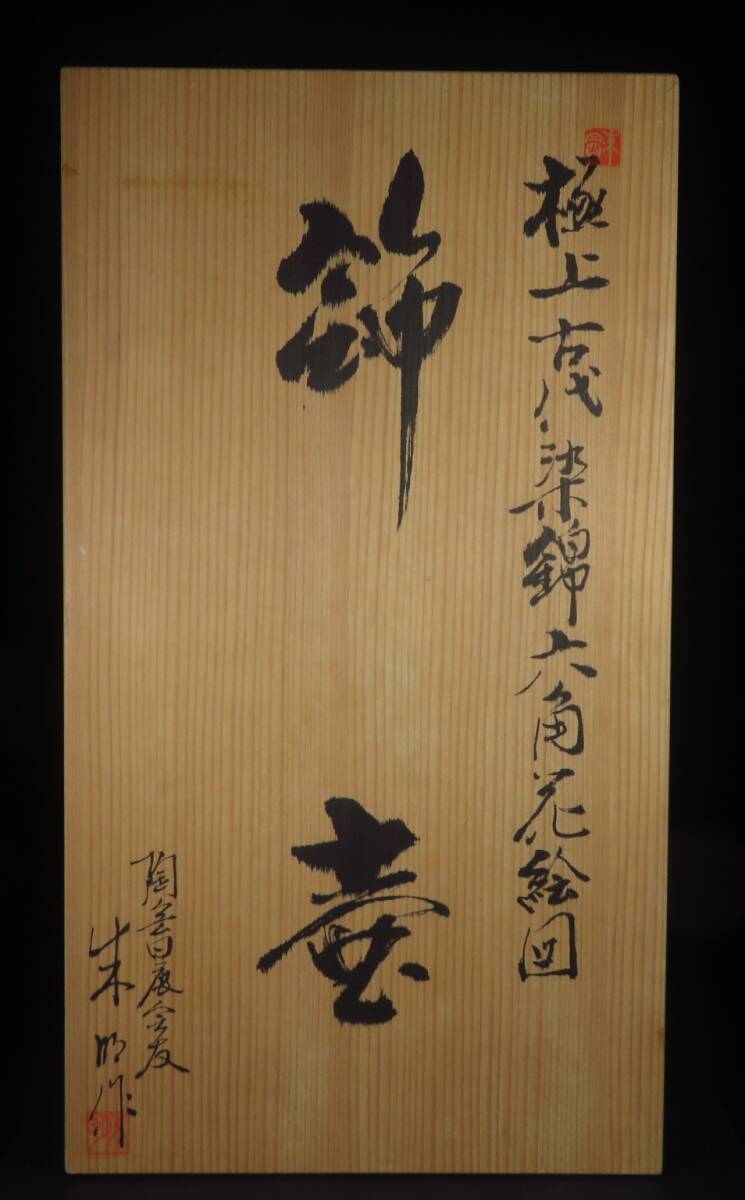 極上古代染錦六角花絵図
飾壷
陶会日展会友
朱明作